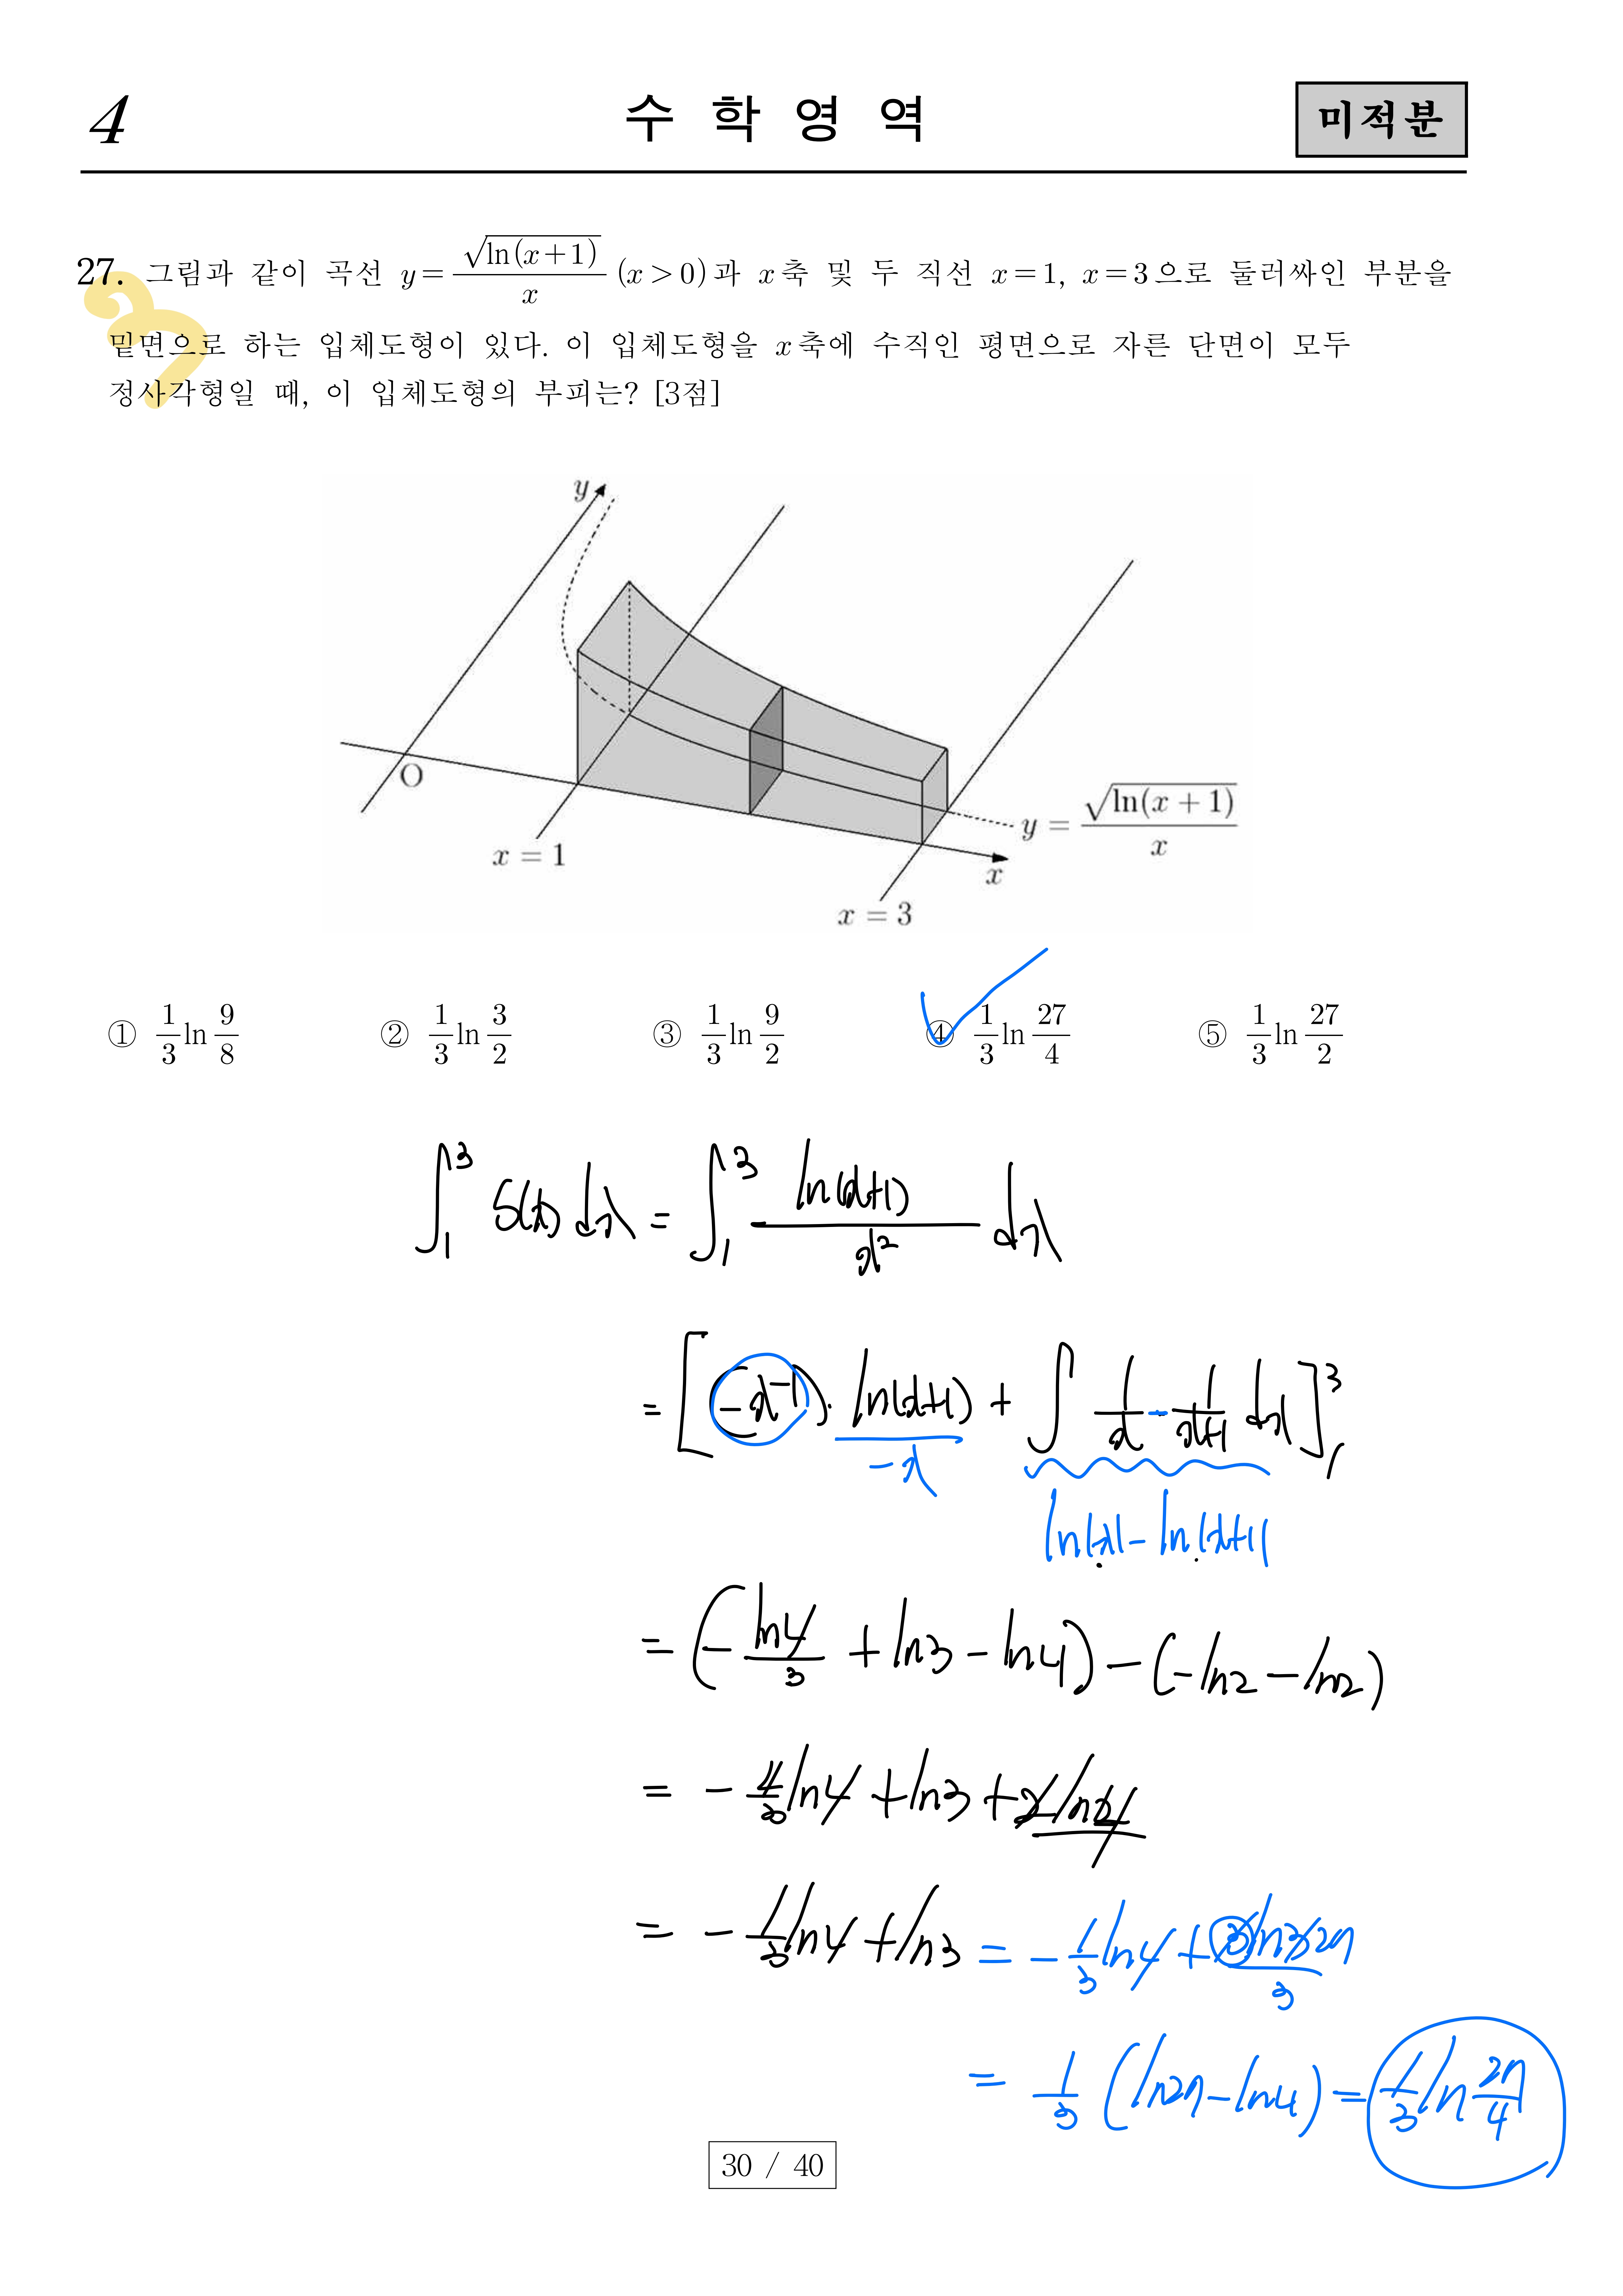 4 수 학 영 역 미적분
27. 그림과 같이 곡선 y = √(ln(x+1))/x (x > 0)과 x축 및 두 직선 x = 1, x = 3으로 둘러싸인 부분을
밑면으로 하는 입체도형이 있다. 이 입체도형을 x축에 수직인 평면으로 자른 단면이 모두
정사각형일 때, 이 입체도형의 부피는? [3점]
y
O
x = 1
y = √(ln(x+1))/x
x
x = 3
① 1/3 ln 9/8 ② 1/3 ln 3/2 ③ 1/3 ln 9/2 ④ 1/3 ln 27/4 ⑤ 1/3 ln 27/2
∫₁³ S(x) dx = ∫₁³ ln(x+1)/x² dx
= [(-x⁻¹)· ln(x+1) + ∫ 1/x - 1/(x+1) dx]₁³
-x
ln|x| - ln|x+1|
= (-ln4/3 + ln3 - ln4) - (-ln2 - ln2)
= -4/3 ln4 + ln3 +
= -1/3 ln4 + ln3 = -1/3 ln4 +
= 1/3 (ln27 - ln4) = 1/3 ln 27/4
30 / 40